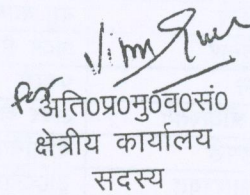 for
अति०प्र०मु०व०सं०
क्षेत्रीय कार्यालय
सदस्य